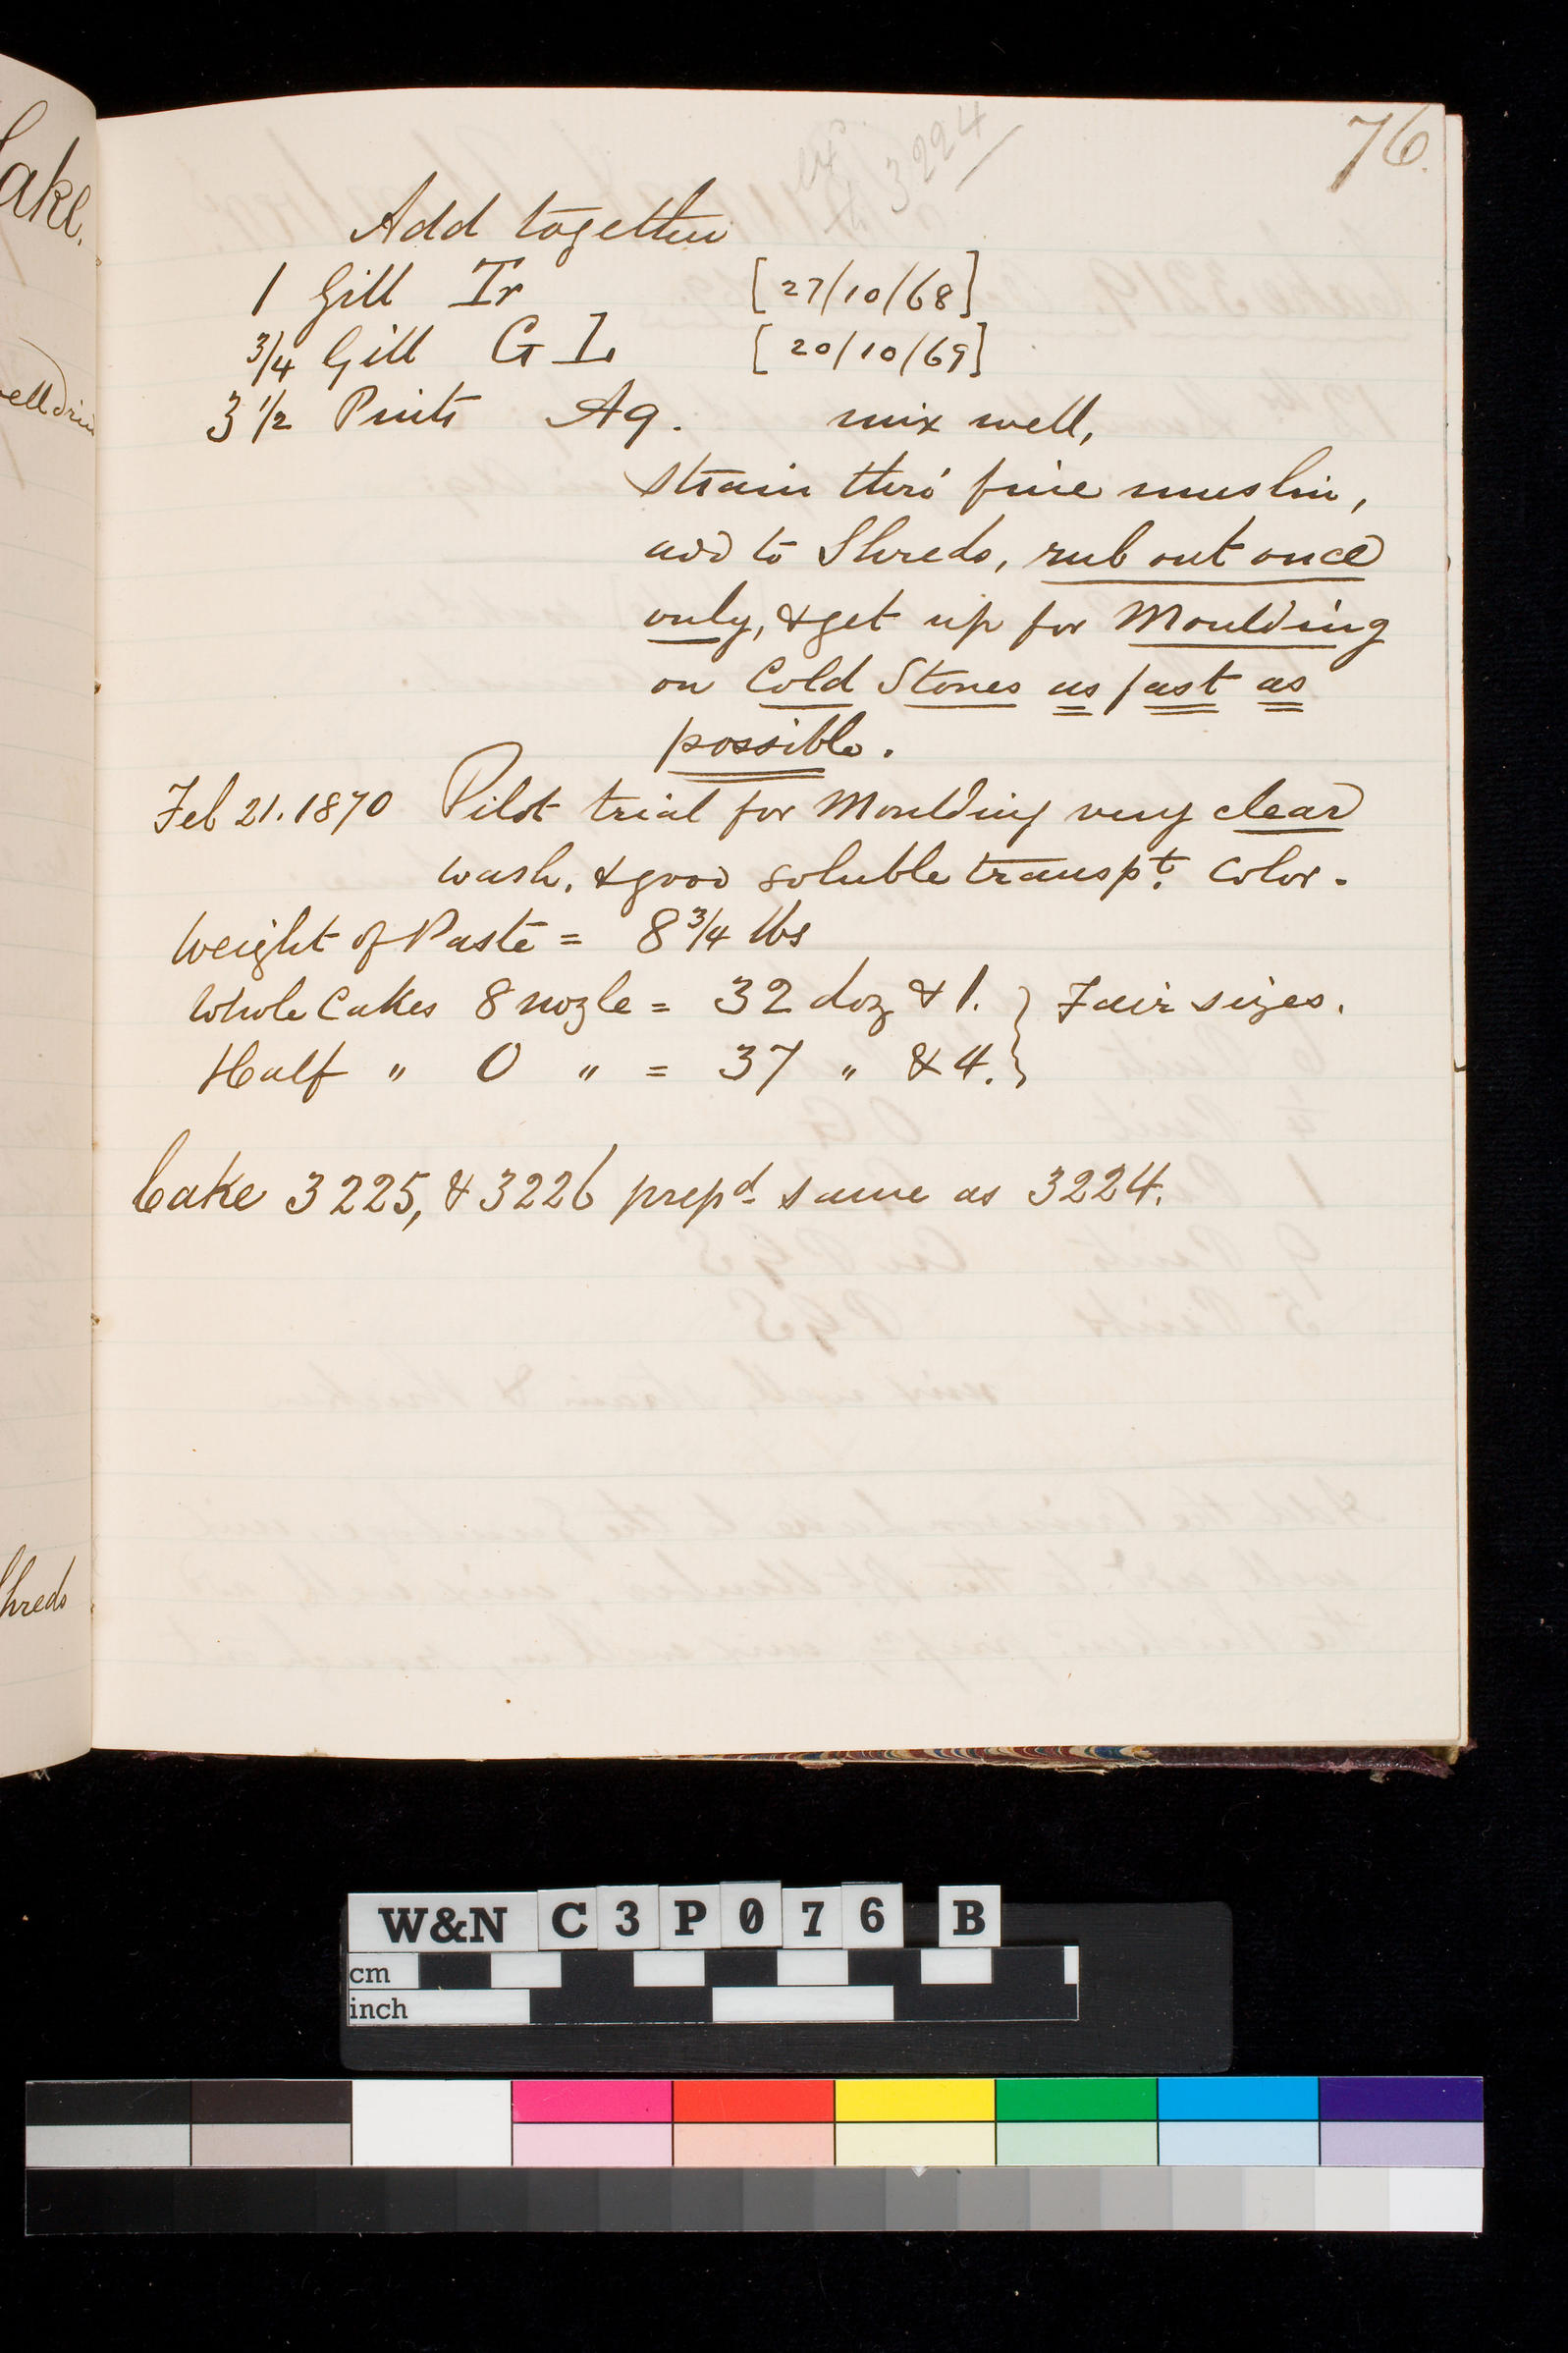 76.
3224
Add together
1 Gill Tr [27/10/68]
3/4 Gill G L [20/10/69]
3 1/2 Pints Aq. mix well,
strain thro' fine muslin,
add to Shreds, rub out once
only, & get up for Moulding
on Cold Stones as fast as
possible.
Feb 21. 1870 Pilot trial for Moulding very clear
wash, & good soluble transpt. Color.
Weight of Paste = 8 3/4 lbs
Whole Cakes 8 nozle = 32 doz & 1. } Fair sizes.
Half " 0 " = 37 " & 4. }
Cake 3225, & 3226 prepd. same as 3224.
ake.
hreds
W&N C3P076 B
cm
inch